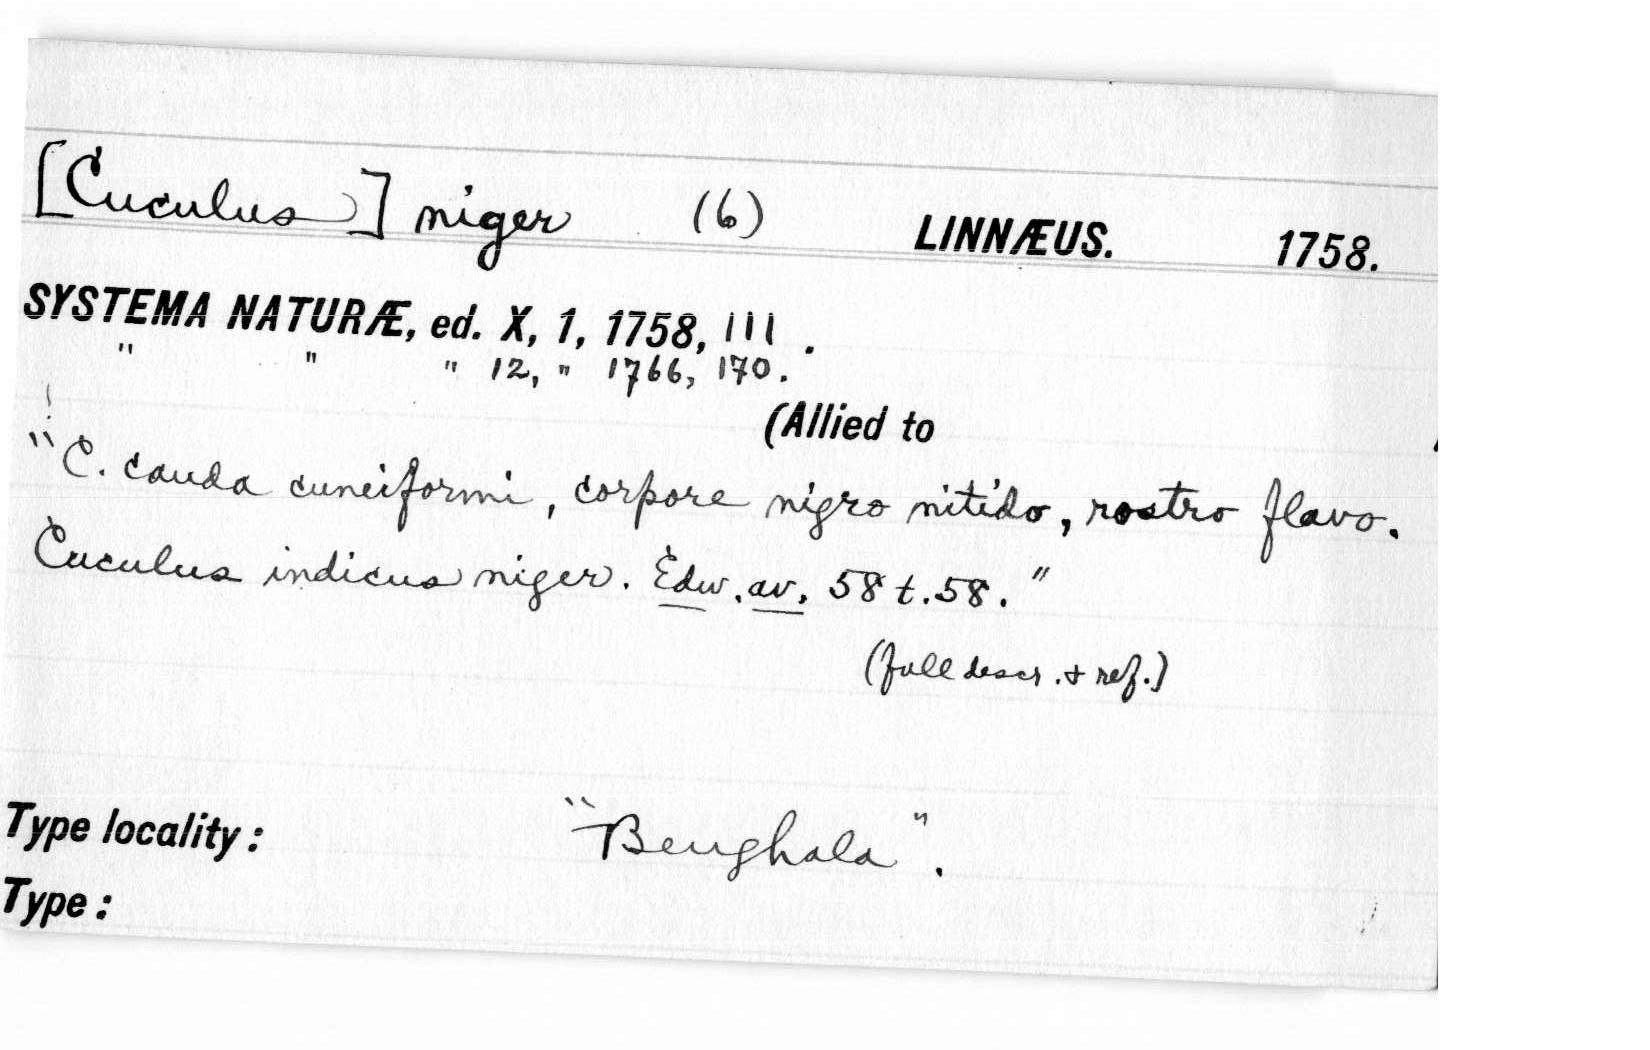 [Cuculus] niger (6) LINNÆUS. 1758.
SYSTEMA NATURÆ, ed. X, 1, 1758, 111.
" " " 12, " 1766, 170.
(Allied to
"C. cauda cuneiformi, corpore nigro nitido, rostro flavo.
Cuculus indicus niger. Edw. av. 58 t. 58."
(full descr. & ref.)
Type locality: "Benghala".
Type: